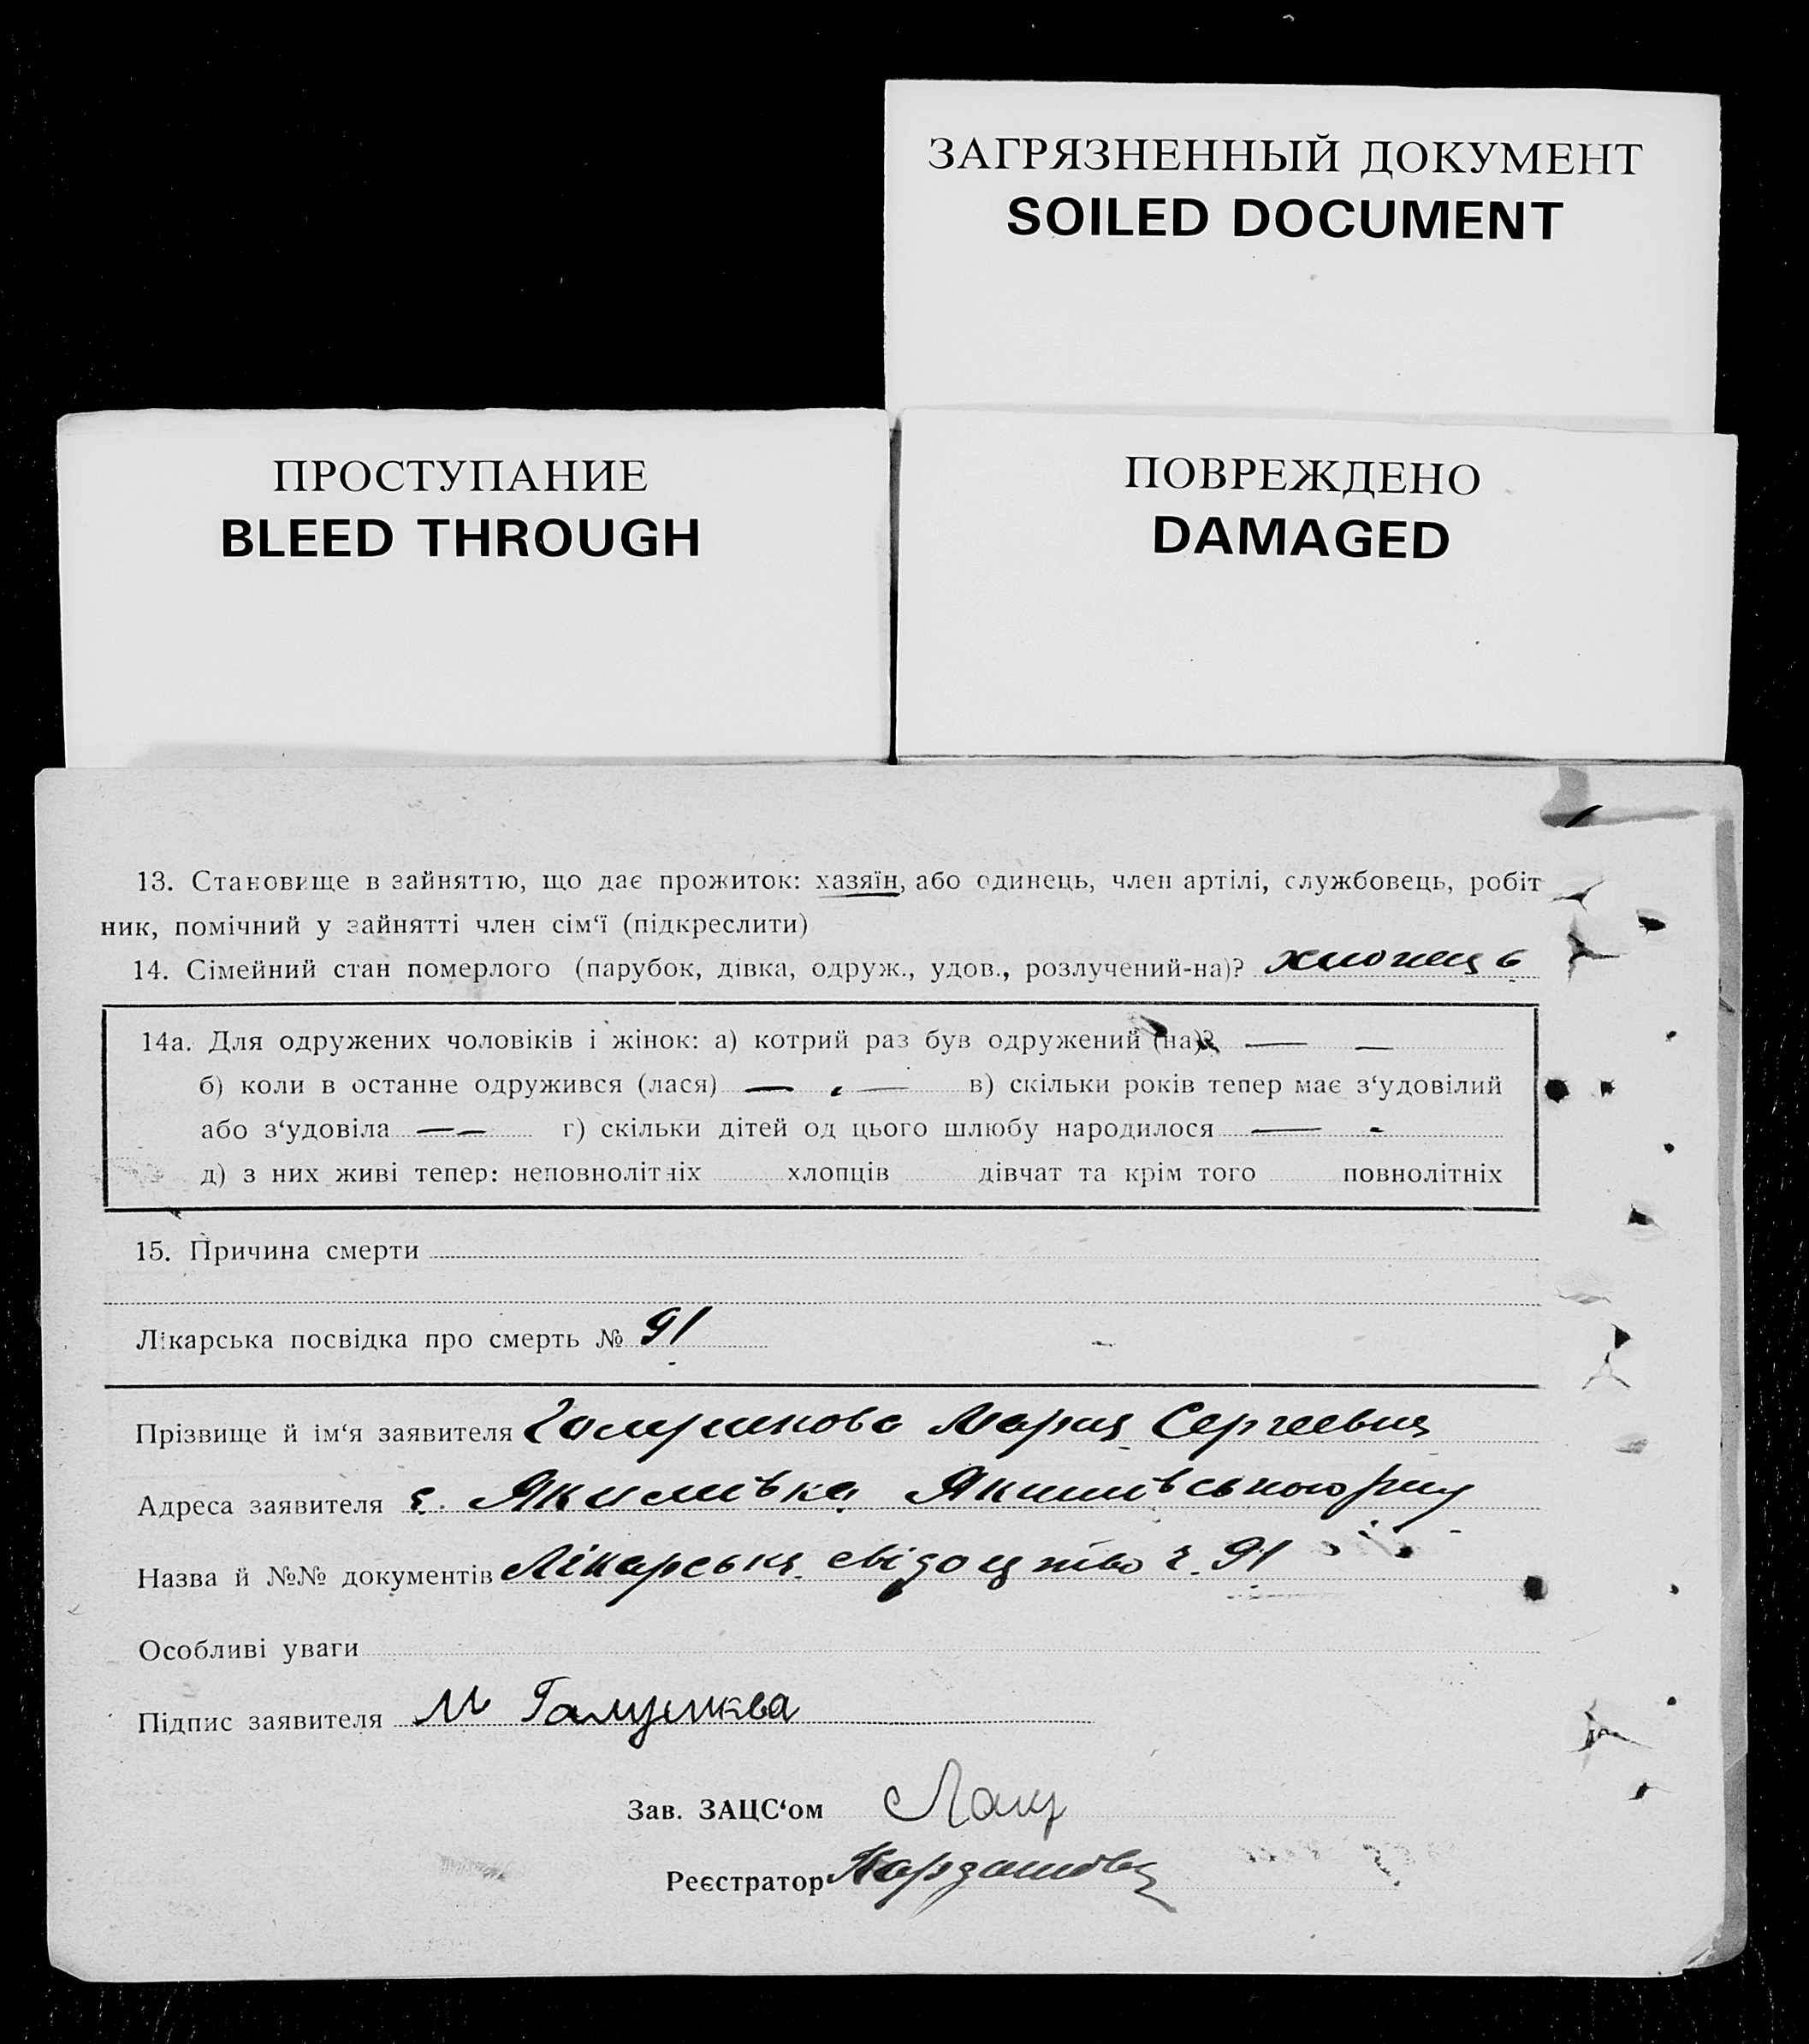 ЗАГРЯЗНЕННЫЙ ДОКУМЕНТ
SOILED DOCUMENT
ПРОСТУПАНИЕ
BLEED THROUGH
ПОВРЕЖДЕНО
DAMAGED
13. Становище в зайняттю, що дає прожиток: хазяїн, або одинець, член артілі, службовець, робіт
ник, помічний у зайнятті член сім‘ї (підкреслити)
14. Сімейний стан померлого (парубок, дівка, одруж., удов., розлучений-на)? хлопець
14а. Для одружених чоловіків і жінок: а) котрий раз був одружений (на)? — —
б) коли в останне одружився (лася) — — в) скільки років тепер має з‘удовілий
або з‘удовіла — — г) скільки дітей од цього шлюбу народилося — -
д) з них живі тепер: неповнолітніх хлопців дівчат та крім того повнолітніх
15. Причина смерти
Лікарська посвідка про смерть № 91
Прізвище й ім‘я заявителя Мария Сергеевна
Адреса заявителя с. Якимівка Якимівського
Назва й №№ документів Лікарське свідоцтво ч. 91
Особливі уваги
Підпис заявителя М
Зав. ЗАЦС‘ом
Реєстратор